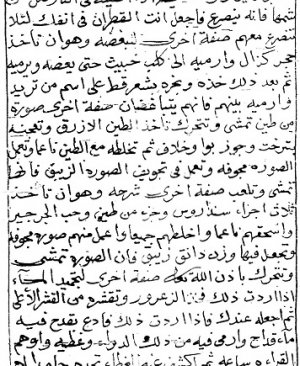 شمها فانه يتصرع فاجعل انت القطران في انفك لئلا
تتصرع معهم صفة اخرى للبغضه وهوان تاخذ
حجر كزال وارميه الى كلب خبيث حتى يعضه ويرميه
ثم بعد ذلك خذه وبخره بشعر قط على اسم من تريد
وارميه بينهم فانهم يتباغضان صفة اخرى صورة
من طين تمشى وتتحرك تاخذ الطين الازرق وتعجنه
وجوز بوا وخلاف ثم تخلطه مع الطين ناعما وتعمل
الصوره مجوفه وتعمل في تجويف الصوره الزيبق فانها
تمشى وتلعب صفة اخرى شرحه وهوان تاخذ
ثلاث اجزاء سندروس وجزء من طين وحب الجرجير
واسحقهم ناعما واخلطهم جميعا واعمل منهم صوره مجوفه
وتجعل فيها وزن دانق زيبق فان الصوره تمشى
وتتحرك باذن الله تعالى صفة اخرى لتجميد الماء
اذا اردت ذلك الزعرور وتقشره من القشر الاعلى
ثم اجعله عندك فاذا اردت ذلك فادع بقدح فيه
ماء قداح وارمى فيه من ذلك الدواء وغطيه واوهم
القراءه ساعه ثم اكشف عنه الغطاء تجده